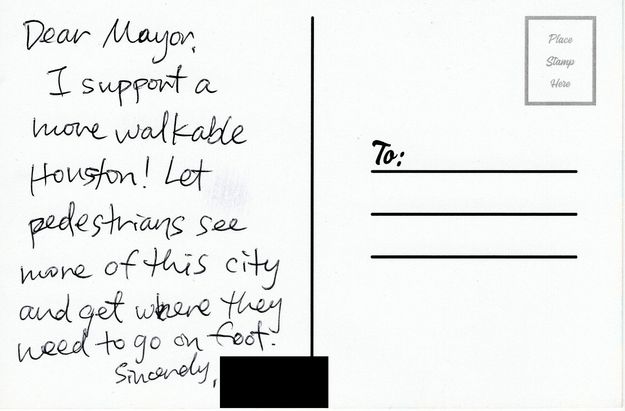 Dear Mayor,
I support a
more walkable
Houston! Let
pedestrians see
more of this city
and get where they
need to go on foot.
Sincerely,
Place
Stamp
Here
To: